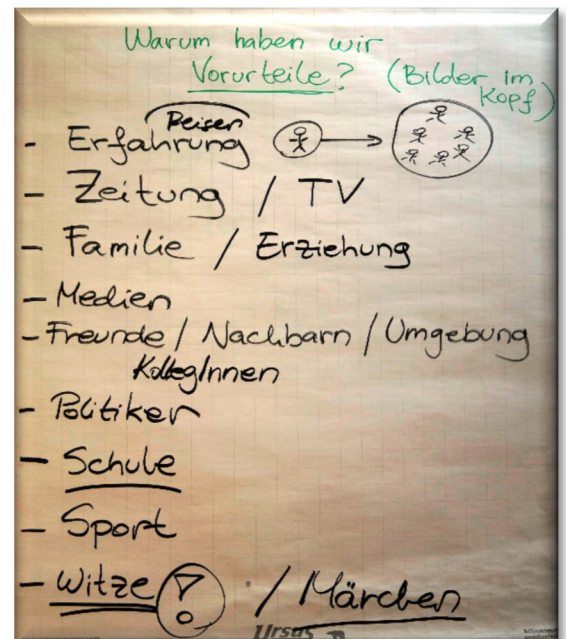 Warum haben wir
Vorurteile? (Bilder im
Kopf)
Reisen
- Erfahrung
- Zeitung / TV
- Familie / Erziehung
- Medien
- Freunde / Nachbarn / Umgebung
KollegInnen
- Politiker
- Schule
- Sport
- Witze ? / Märchen
Ursus